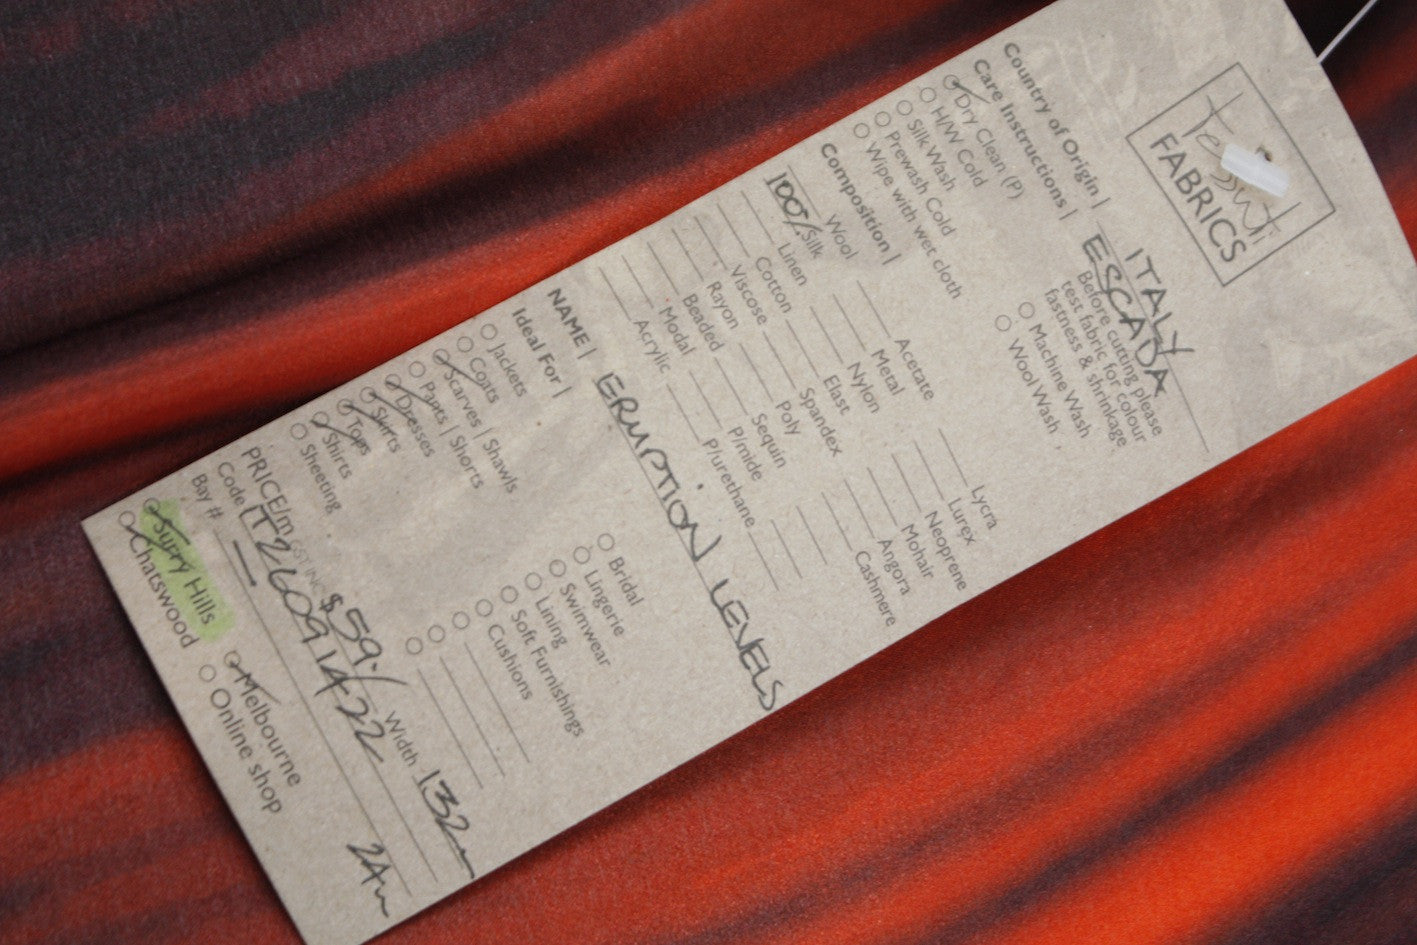 Tessuti
FABRICS
Country of Origin | ITALY
ESCADA
Care Instructions | Before cutting please
test fabric for colour
fastness & shrinkage
Dry Clean (P)
H/W Cold
Silk Wash
Prewash Cold
Wipe with wet cloth
Machine Wash
Wool Wash
Composition |
Wool Acetate Lycra
100% Silk Metal Lurex
Linen Nylon Neoprene
Cotton Elast Mohair
Viscose Spandex Angora
Rayon Poly Cashmere
Beaded Sequin
Modal P/mide
Acrylic P/urethane
NAME | ERUPTION LEVELS
Ideal For |
Jackets Bridal
Coats Lingerie
Scarves | Shawls Swimwear
Pants | Shorts Lining
Dresses Soft Furnishings
Skirts Cushions
Tops
Shirts
Sheeting
PRICE/m GST INC $59./ Width 132m
Code IT26091422
Bay # 24m
Surry Hills Melbourne
Chatswood Online shop